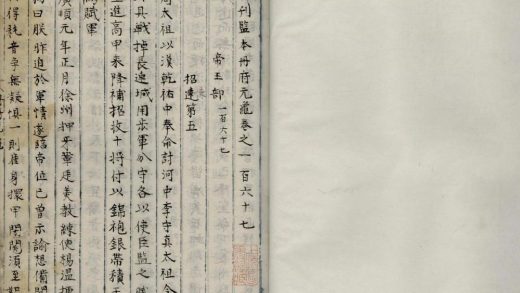 刊監本冊府元龜卷之一百六十七
帝王部 一百六十七
招懷第五
周太祖以漢乾祐中奉命討河中李守真太祖令
具戰掉長連城用步軍分守各以使臣監之賊
王進高甲來降補招收十將付以錦袍銀帶積
賊軍
廣順元年正月徐州押牙鞏廷美教練使楊溫據
曰朕昨迫於軍情遂臨帝位已曾示諭想備聞
得音卒無疑慎一則身擐甲閉關須至